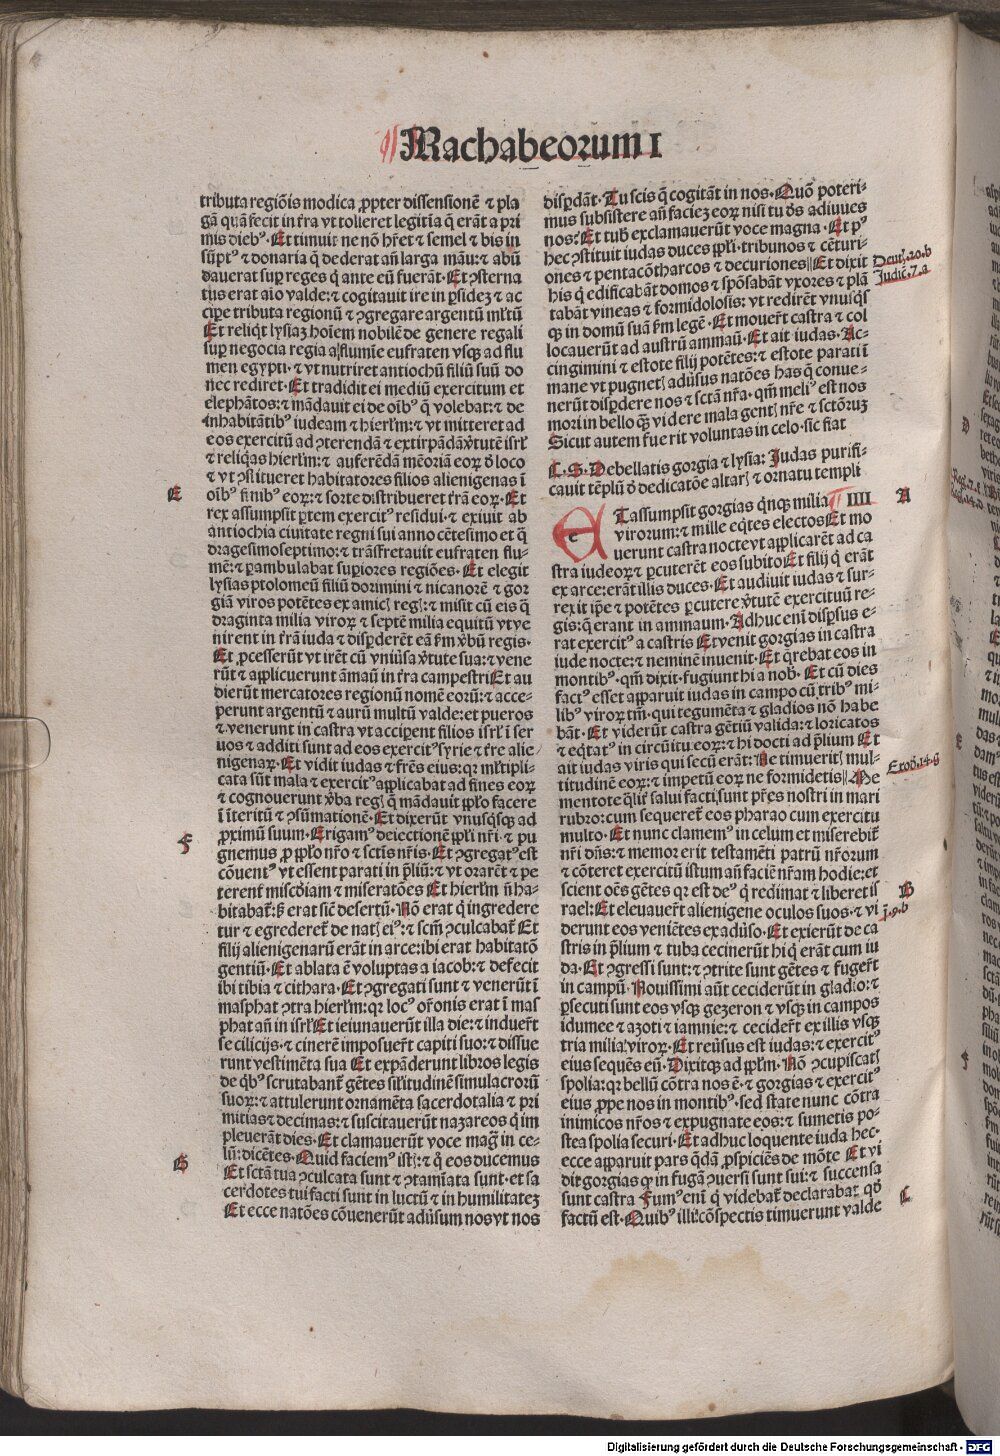 Machabeorum I
tributa regiōis modica ꝓpter dissensionē ⁊ pla
gā quā fecit in t̄ra vt tolleret legitīa q̄ erāt a pri
mis diebꝰ. Et timuit ne nō hr̄et ⁊ semel ⁊ bis in
sūptꝰ ⁊ donaria q̄ dederat an̄ larga māu: ⁊ abū
dauerat suꝑ reges q̄ ante eū fuerāt. Et ꝯsterna
tus erat aīo valde: ⁊ cogitauit ire in ꝑsidez ⁊ ac
ciꝑe tributa regionū ⁊ ꝯgregare argentū ml̄tū
Et reliqt̄ lysiaz hoīem nobilē de genere regali
suꝑ negocia regia a flumīe eufraten vsqꝫ ad flu
men egypti. ⁊ vt nutriret antiochū filiū suū do
nec rediret. Et tradidit ei mediū exercitum et
elephātos: ⁊ mādauit ei de oībꝰ q̄ volebat: ⁊ de
inhabitātibꝰ iudeam ⁊ hierl̄m: ⁊ vt mitteret ad
eos exercitū ad ꝯterendā ⁊ extirpādā v̄tutē isrl̄
⁊ reliqas hierl̄m: ⁊ auferēdā mēoriā eoꝝ d̄ loco
⁊ vt ꝯstitueret habitatores filios alienigenas ī
E
oībꝰ finibꝰ eoꝝ: ⁊ sorte distribueret t̄rā eoꝝ. Et
rex assumpsit ꝑtem exercitꝰ residui. ⁊ exiuit ab
antiochia ciuitate regni sui anno cētesimo et q̄
dragesimoseptimo: ⁊ trāsfretauit eufraten flu-
mē: ⁊ ꝑambulabat suꝑiores regiōes. Et elegit
lysias ptolomeū filiū dorimini ⁊ nicanorē ⁊ gor
giā viros potētes ex amicꝭ regꝭ: ⁊ misit cū eis q̄
draginta milia viroꝝ ⁊ septē milia equitū vt ve
nirent in t̄rā iuda ⁊ disꝑderēt eā ẜm v̄bū regis.
Et ꝓcesserūt vt irēt cū vniūsa v̄tute sua: ⁊ vene
rūt ⁊ applicuerunt āmaū in t̄ra campestri Et au
dierūt mercatores regionū nomē eorū: ⁊ acce-
perunt argentū ⁊ aurū multū valde: et pueros
⁊ venerunt in castra vt acciꝑent filios isrl̄ ī ser
uos ⁊ additi sunt ad eos exercitꝰ syrie ⁊ t̄re alie
nigenaꝝ. Et vidit iudas ⁊ fr̄es eius: qꝛ ml̄tipli-
cata sūt mala ⁊ exercitꝰ applicabat ad fines eoꝝ
⁊ cognouerunt v̄ba regꝭ q̄ mādauit ppl̄o facere
ī iteritū ⁊ ꝯsūmationē. Et dixerūt vnusqsqꝫ ad
F
ꝓximū suum. Erigamꝰ deiectionē ppl̄i nr̄i. ⁊ pu
gnemus ꝓ ppl̄o nr̄o ⁊ sctīs nr̄is. Et ꝯgregatꝰ est
cōuentꝰ vt essent parati in p̄liū: ⁊ vt orarēt ⁊ pe
terent̄ misc̄diam ⁊ miseratōes Et hierl̄m n̄ ha-
bitabat̄: ꝫ erat sic̄ desertū. Nō erat q̄ ingredere
tur ⁊ egrederet̄ de natꝭ eiꝰ: ⁊ scm̄ ꝯculcabat̄ Et
filij alienigenarū erāt in arce: ibi erat habitatō
gentiū. Et ablata ē voluptas a iacob: ⁊ defecit
ibi tibia ⁊ cithara. Et ꝯgregati sunt ⁊ venerūt ī
masphat ꝯtra hierl̄m: qꝛ locꝰ or̄onis erat ī mas
phat an̄ in isrl̄ Et ieiunauerūt illa die: ⁊ induer̄t
se cilicijs. ⁊ cinerē imposuer̄t capiti suo: ⁊ dissue
runt vestimēta sua Et expāderunt libros legis
de qb̄ꝰ scrutabant̄ gētes sil̄itudinē simulacrorū
suoꝝ: ⁊ attulerunt ornamēta sacerdotalia ⁊ pri
mitias ⁊ decimas: ⁊ suscitauerūt nazareos q̄ im
pleuerāt dies. Et clamauerūt voce maḡ in ce-
G
lū: dicētes. Quid faciemꝰ istꝭ: ⁊ q̄ eos ducemus
Et sctā tua ꝯculcata sunt ⁊ ꝯtamīata sunt. et sa
cerdotes tui facti sunt in luctū ⁊ in humilitatez
Et ecce natōes cōuenerūt adūsum nos vt nos
disꝑdāt. Tu scis q̄ cogitāt in nos. Quō poteri-
mus subsistere an̄ faciez eoꝝ nisi tu ds̄ adiuues
nos? Et tub̄ exclamauerūt voce magna. Et pꝰ
hec ꝯstituit iudas duces ppl̄i. tribunos ⁊ cēturi-
ones ⁊ pentacōtharcos ⁊ decuriones Et dixit
Deut̄. 20. b
Judic̄. 7. a
his q̄ edificabāt domos ⁊ spōsabāt vxores ⁊ plā
tabāt vineas ⁊ formidolosis: vt redirēt vnusqs
qꝫ in domū suā ẜm legē. Et mouer̄t castra ⁊ col
locauerūt ad austrū ammaū. Et ait iudas. Ac-
cingimini ⁊ estote filij potētes: ⁊ estote parati ī
mane vt pugnetꝭ adūsus natōes has q̄ conue-
nerūt disꝑdere nos ⁊ sctā nr̄a. qm̄ meliꝰ est nos
mori in bello qꝫ videre mala gentꝭ nr̄e ⁊ sctōruꝫ
Sicut autem fuerit voluntas in celo. sic fiat
C. S. Debellatis gorgia ⁊ lysia: Judas purifi-
cauit tēplū d̄ dedicatōe altarꝭ ⁊ ornatu templi
ET assumpsit gorgias qnqꝫ milia IIII
A
virorum: ⁊ mille eq̄tes electos Et mo
uerunt castra nocte vt applicarēt ad ca
stra iudeoꝝ ⁊ ꝑcuterēt eos subito Et filij q̄ erāt
ex arce: erāt illis duces. Et audiuit iudas ⁊ sur-
rexit ip̄e ⁊ potētes ꝑcutere v̄tutē exercituū re-
gis: q̄ erant in ammaum. Adhuc enī disꝑsus e-
rat exercitꝰ a castris Et venit gorgias in castra
iude nocte: ⁊ neminē inuenit. Et q̄rebat eos in
montibꝰ. qm̄ dixit. fugiunt hi a nob̄. Et cū dies
factꝰ esset apparuit iudas in campo cū tribꝰ mi-
libꝰ viroꝝ tm̄. qui tegumēta ⁊ gladios nō habe
bāt. Et viderūt castra gētiū valida: ⁊ loricatos
⁊ eq̄tatꝰ in circūitu eoꝝ: ⁊ hi docti ad p̄lium Et
ait iudas viris qui secū erāt: Ne timueritꝭ mul-
titudinē eoꝝ: ⁊ impetū eoꝝ ne formidetis Me
Exod̄. 14. g
mentote q̄lit̄ salui facti sunt pr̄es nostri in mari
rubro: cum sequeret̄ eos pharao cum exercitu
multo. Et nunc clamemꝰ in celum et miserebit̄
nr̄i dn̄s: ⁊ memor erit testamēti patrū nr̄orum
⁊ cōteret exercitū istum an̄ faciē nr̄am hodie: et
scient oēs gētes qꝛ est deꝰ q̄ redimat ⁊ liberet is
B
rael: Et eleuauer̄t alienigene oculos suos. ⁊ vi
j. 9. b
derunt eos veniētes ex adūso. Et exierūt de ca
stris in p̄lium ⁊ tuba cecinerūt hi q̄ erāt cum iu
da. Et ꝯgressi sunt: ⁊ ꝯtrite sunt gētes ⁊ fuger̄t
in campū. Nouissimi aūt ceciderūt in gladio: ⁊
ꝑsecuti sunt eos vsqꝫ gezeron ⁊ vsqꝫ in campos
idumee ⁊ azoti ⁊ iamnie: ⁊ cecider̄t ex illis vsqꝫ
tria milia viroꝝ. Et reūsus est iudas: ⁊ exercitꝰ
eius sequēs eū. Dixitqꝫ ad ppl̄m. Nō ꝯcupiscatꝭ
spolia: qꝛ bellū cōtra nos ē. ⁊ gorgias ⁊ exercitꝰ
eius ꝓpe nos in montibꝰ. sed state nunc cōtra
inimicos nr̄os ⁊ expugnate eos: ⁊ sumetis po-
stea spolia securi. Et adhuc loquente iuda hec.
ecce apparuit pars qdā ꝓspiciēs de mōte Et vi
dit gorgias qꝫ in fugā ꝯuersi sunt sui: ⁊ succensa
C
sunt castra Fumꝰ enī q̄ videbat̄ declarabat qd̄
factū est. Quibꝰ illi cōspectis timuerunt valde
Digitalisierung gefördert durch die Deutsche Forschungsgemeinschaft - DFG